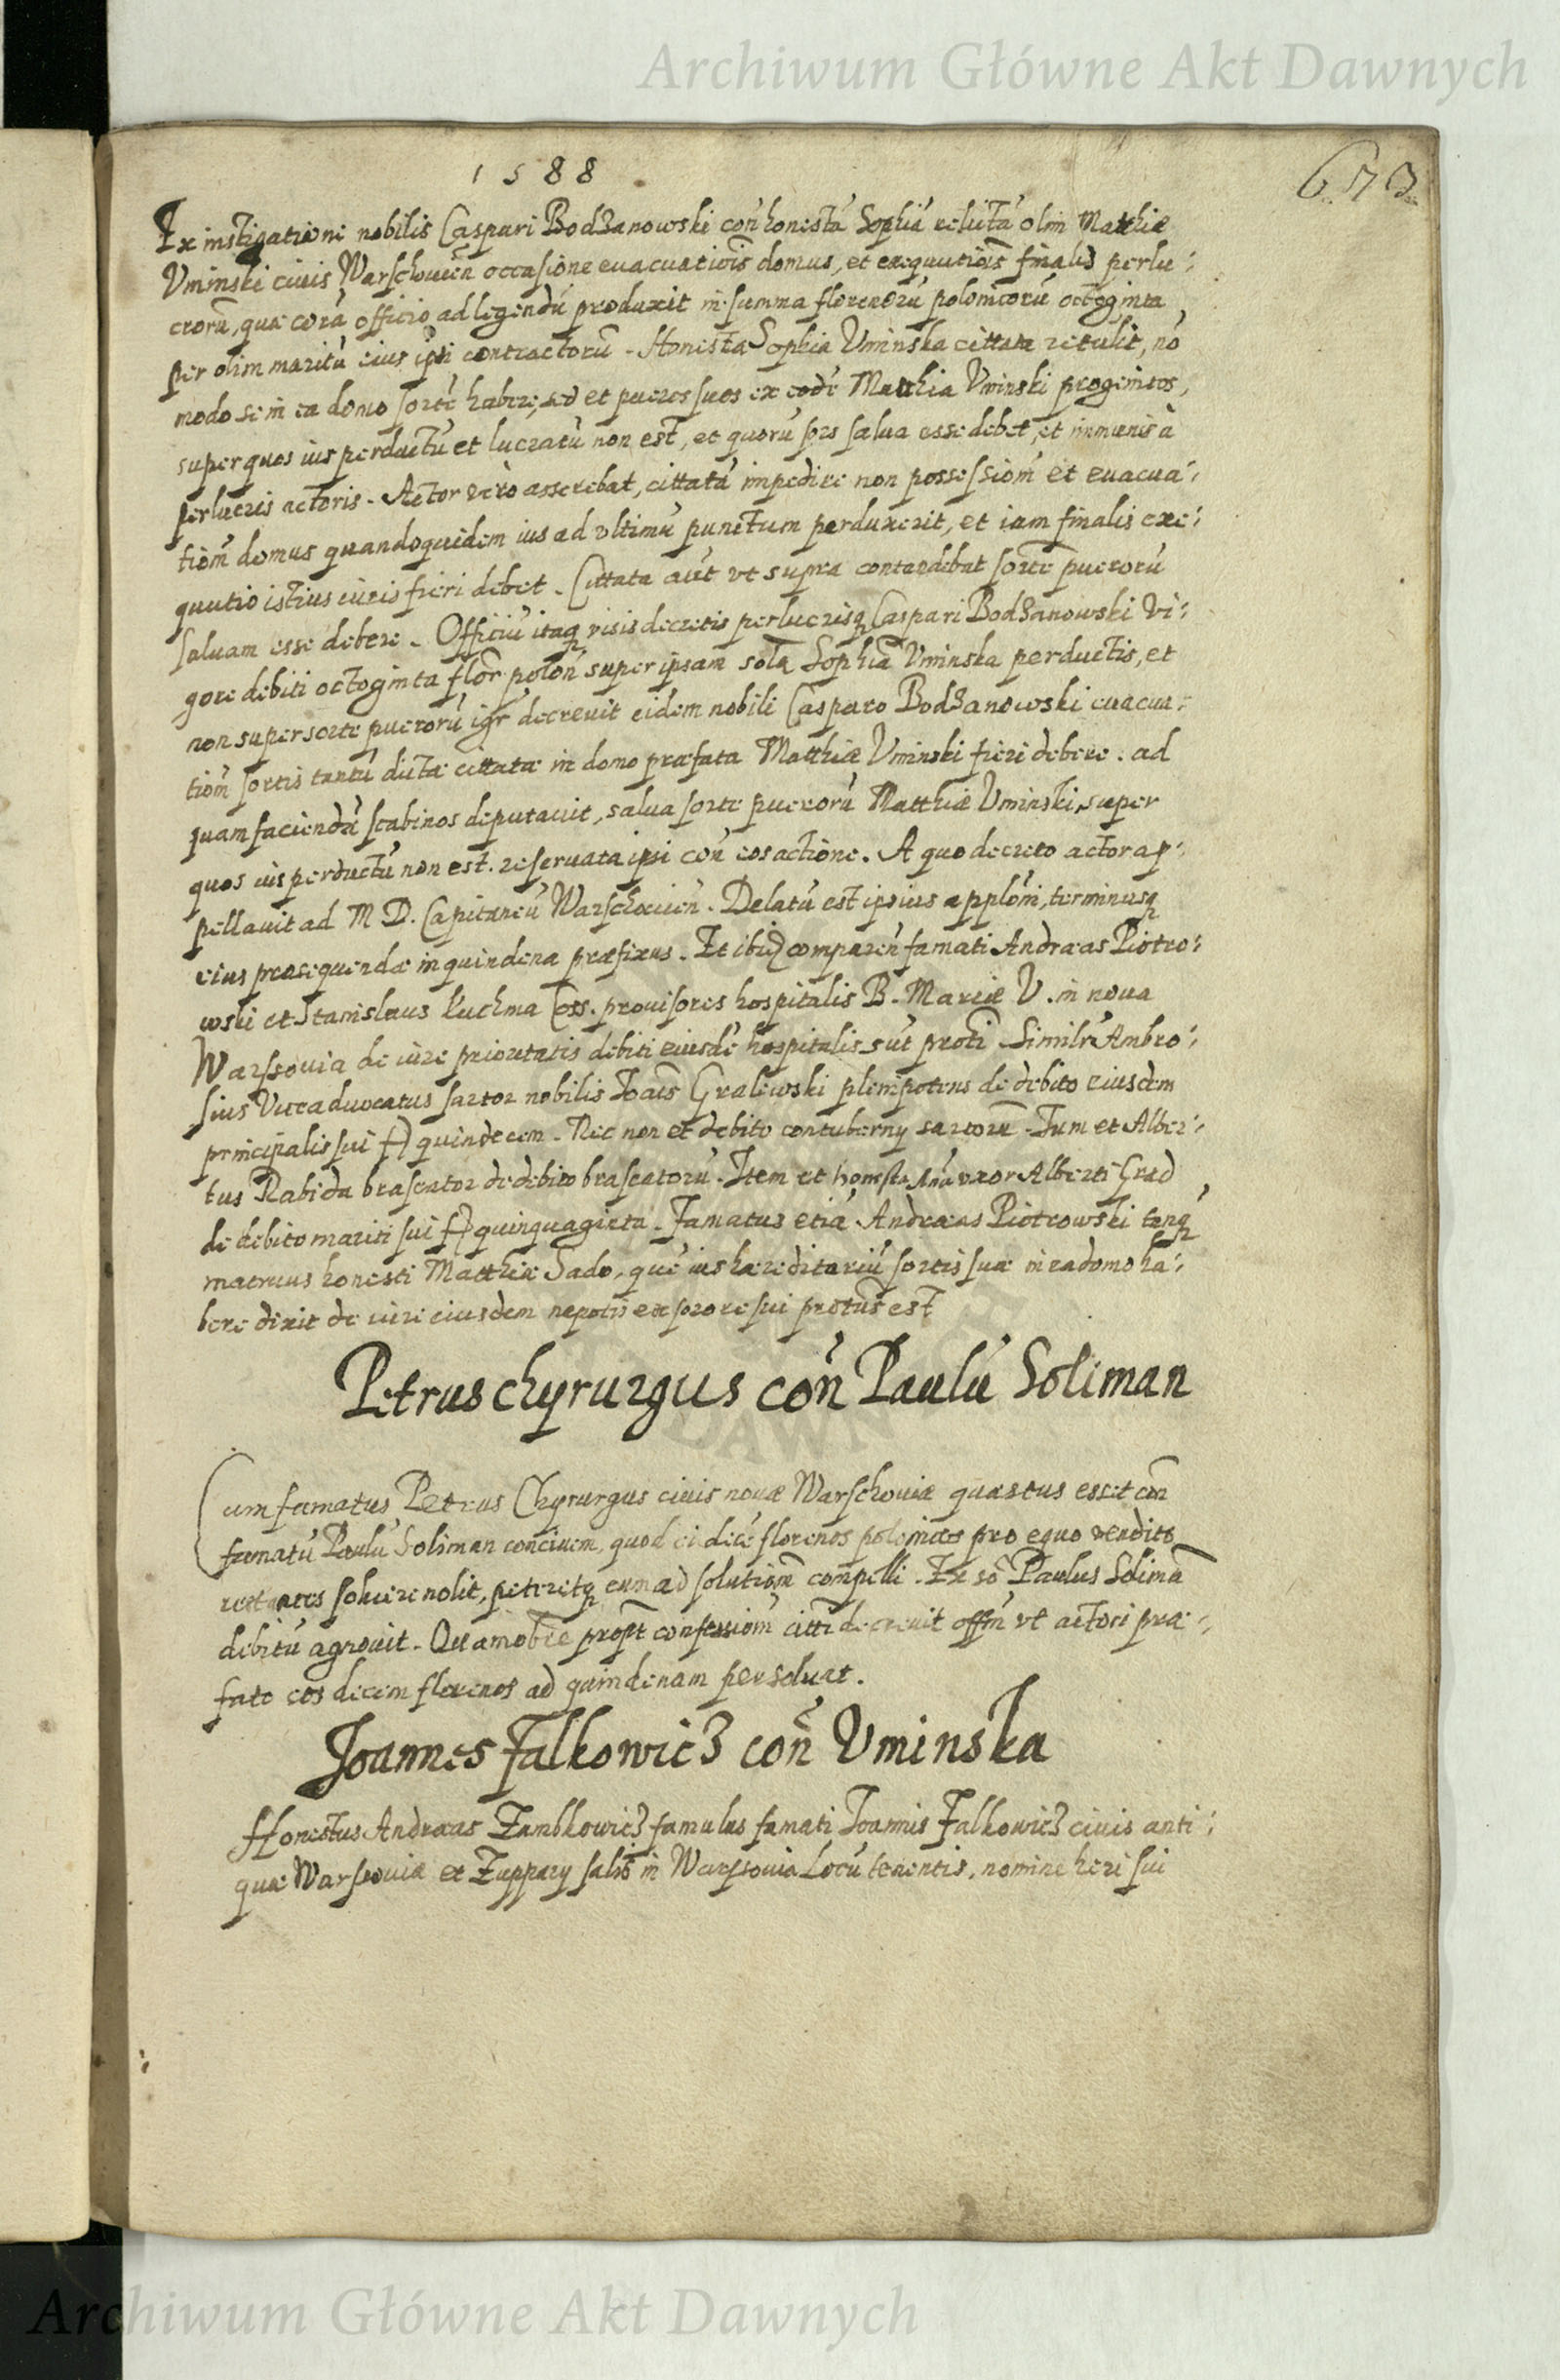 Archiwum Główne Akt Dawnych
1588
673
Ex instigatione nobilis Caspari Bodzanowski con̄ honestā Sophiā relictā olim Matthiæ
Vminski ciuis Warschouien̄ occasione euacuatiōis domus, et exequutiōis finalis perlu:
crorū, quæ corā officio ad legendū produxit in summa florenorū polonicorū octoginta
per olim maritū eius ipsi contractorū - Honesta Sophia Vminska cittata retulit, nō
modo se in ea domo sortē habere, sed et pueros suos ex eodē Matthia Vminski progenitos,
super quos ius perductū et lucratū non est, et quorū sors salua esse debet, et immunis à
perlucris actoris - Actor verò asserebat, cittatā impedire non possessiom̄ et euacua:
tiom̄ domus quandoquidem ius ad vltimū punctum perduxerit, et iam finalis exe:
qutio istius iuris fieri debet - Cittata aūt vt supra contendebat sortē puerorū
saluam esse debere - Officiū itaq visis decretis perlucrisq Caspari Bodzanowski vi:
gore debiti octoginta flor̄ polon̄ super ipsam solā Sophiā Vminska perductis, et
non super sorte puerorū igr̄ decreuit eidem nobili Casparo Bodzanowski euacua:
tiom̄ sortis tantū dictæ cittatæ in domo præfata Matthiæ Vminski fieri debere. ad
quam faciendā scabinos deputauit, salua sorte puerorū Matthiæ Vminski, super
quos ius perductū non est. reseruata ipsi con̄ eos actione. A quo decreto actor ap:
pellauit ad M D. Capitaneū Warschouien̄. Delatū est ipsius applom̄, terminusq
eius prosequendæ in quindena præfixus - Et ibid comparen̄ famati Andræas Piotro:
wski et Stanislaus Kuchma Coss. prouisores hospitalis B. Mariæ V. in noua
Warssouia de iure prioritatis debiti eiusdē hospitalis sūt proti Similr̄ Ambro:
sius Viceaduocatus sartor nobilis Joāis Gralewski plenipotens de debito eiusdem
principalis sui fl quindecem - Nec non et debito contubernij sartorū - Tum et Alber:
tus Rabida braseator de debito braseatorū. Item et honesta Anā vxor Alberti Grad
de debito mariti sui fl quinquaginta - Famatus etiā Andræas Piotrowski tanq
matruus honesti Matthiæ Sado, quē ius hæreditariū sortis suæ in ea domo ha:
bere dixit de iure eiusdem nepotis ex sorore sui protūs est
Petrus chyrurgus con̄ Paulū Soliman
Cum famatus Petrus Chyrurgus ciuis nouæ Warschouiæ quæstus esset con̄
famatū Paulū Soliman conciuem, quod ei decē florenos polonicos pro equo vendito
soluere nolit, petiretq eum ad solutiom̄ compelli - Ex sō Paulus Solimā
debitū agnouit - Quamobrē propt̄ confessiom̄ citti decreuit offm̄ vt actori præ:
fato eos decem florenos ad quindenam persoluat.
Joannes Falkowicz con̄ Vminska
Honestus Andræas Zambkowicz famulus famati Joannis Falkowicz ciuis anti:
quæ Warssouiæ et Zupparij salis in Warssouia Locū tenentis, nomine heri sui
Archiwum Główne Akt Dawnych